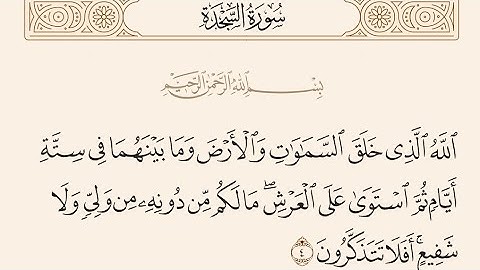 سُورَةُ السَّجْدَةِ
بِسْمِ اللَّهِ الرَّحْمَٰنِ الرَّحِيمِ
ٱللَّهُ ٱلَّذِى خَلَقَ ٱلسَّمَٰوَٰتِ وَٱلْأَرْضَ وَمَا بَيْنَهُمَا فِى سِتَّةِ
أَيَّامٍ ثُمَّ ٱسْتَوَىٰ عَلَى ٱلْعَرْشِ ۖ مَا لَكُم مِّن دُونِهِۦ مِن وَلِىٍّ وَلَا
شَفِيعٍ ۚ أَفَلَا تَتَذَكَّرُونَ ٤